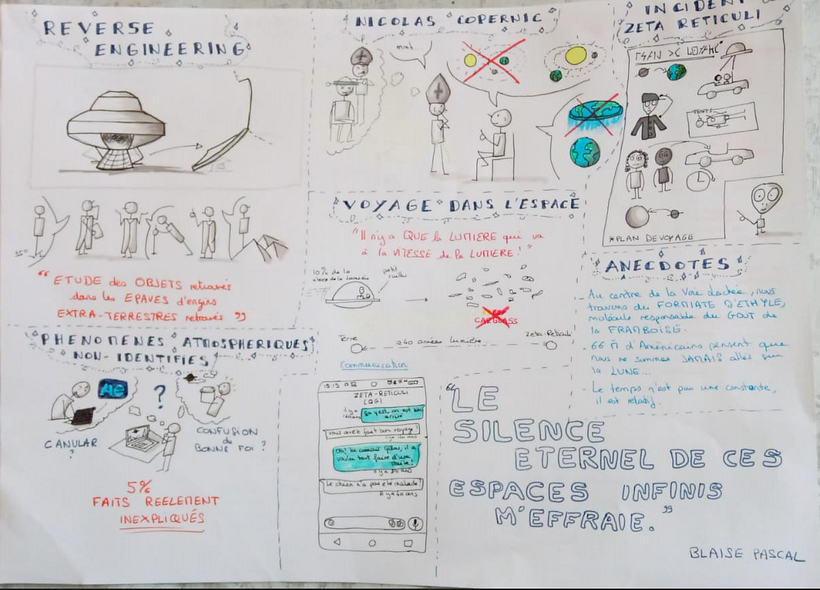 REVERSE
ENGINEERING
"ETUDE des OBJETS retrouvés
dans les EPAVES d'engins
EXTRA-TERRESTRES retrouvés"
PHENOMENES ATMOSPHERIQUES
NON-IDENTIFIES
AE
?
CANULAR
?
CONFUSION
de
BONNE FOI ?
5%
FAITS REELEMENT
INEXPLIQUÉS
NICOLAS COPERNIC
VOYAGE DANS L'ESPACE
"Il n'y a QUE la LUMIERE qui va
à la VITESSE de la LUMIERE!"
10% de la
petit
CARGLASS
Terre
années lumière
Zeta-Reticuli
Communication
ZETA-RETICULI
INCIDENT
ZETA RETICULI
*PLAN DE VOYAGE
ANECDOTES
- Au centre de la Voie Lactée, nous
trouvons du FORMIATE D'ETHYLE,
molécule responsable du GOUT de
la FRAMBOISE.
- 66 M d'Américains pensent que
nous ne sommes JAMAIS allés sur
la LUNE...
- Le temps n'est pas une constante,
il est relatif
"LE
SILENCE
ETERNEL DE CES
ESPACES INFINIS
M'EFFRAIE."
BLAISE PASCAL